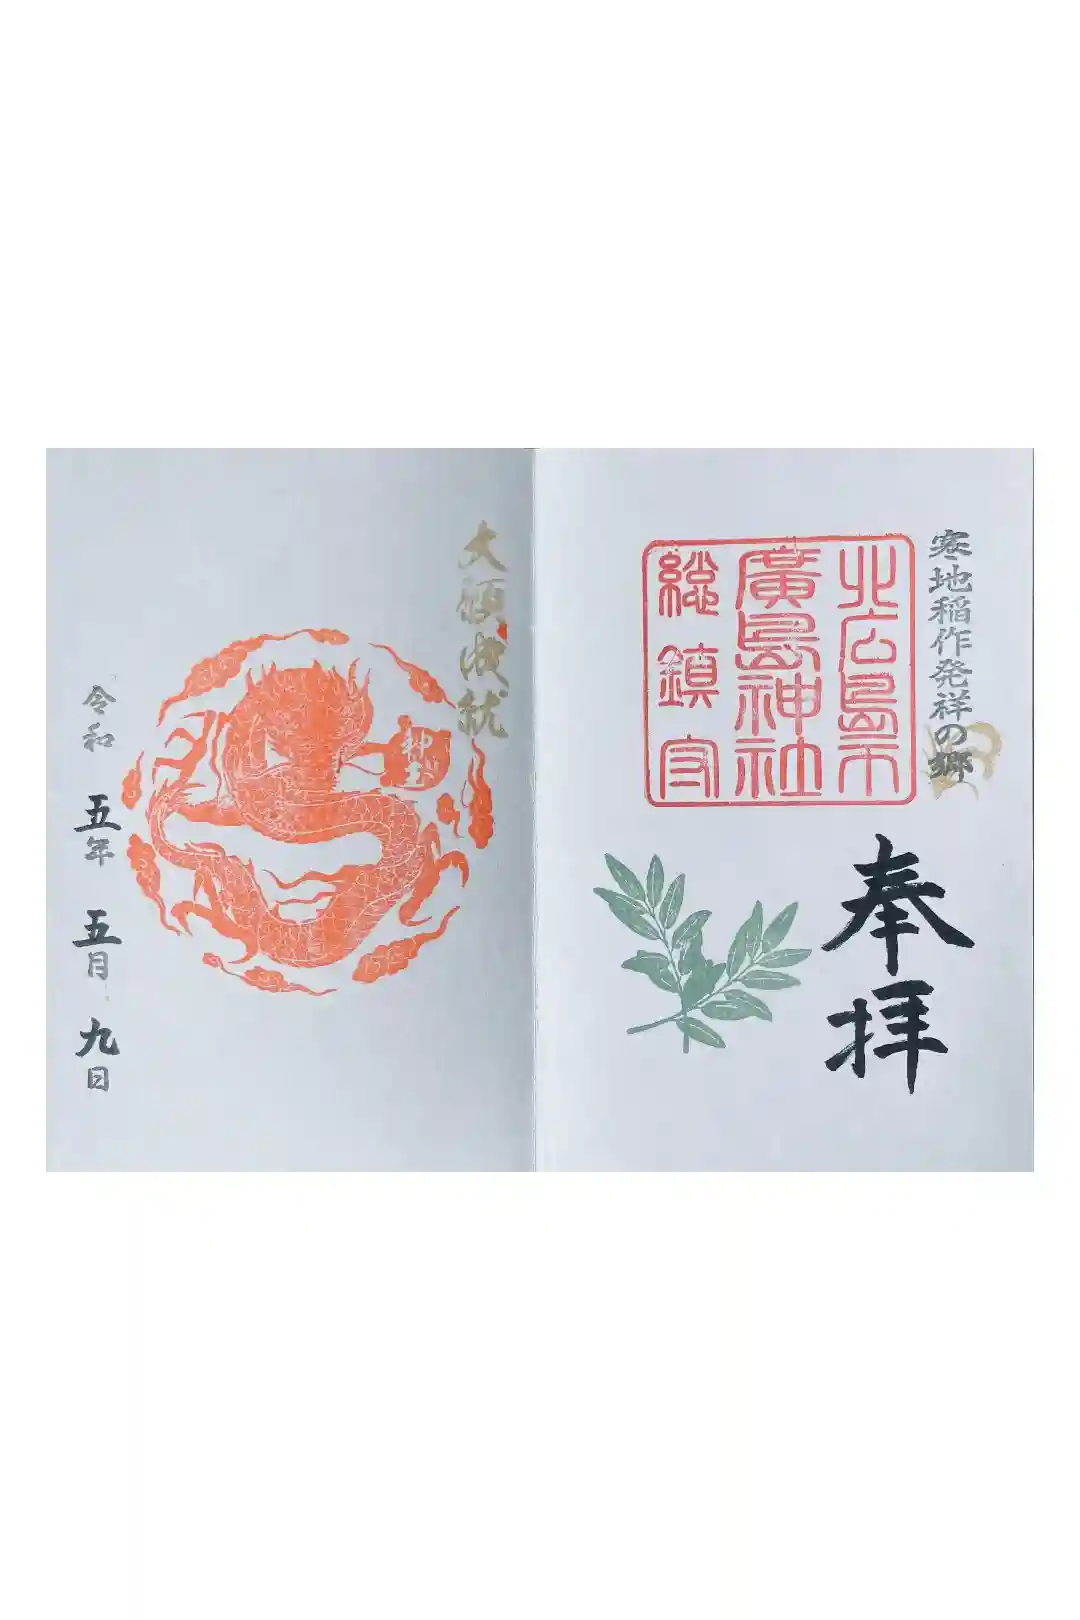 寒地稲作発祥の郷
奉拝
北広島市
廣島神社
総鎮守
大願成就
神玉
令和 五年 五月 九日